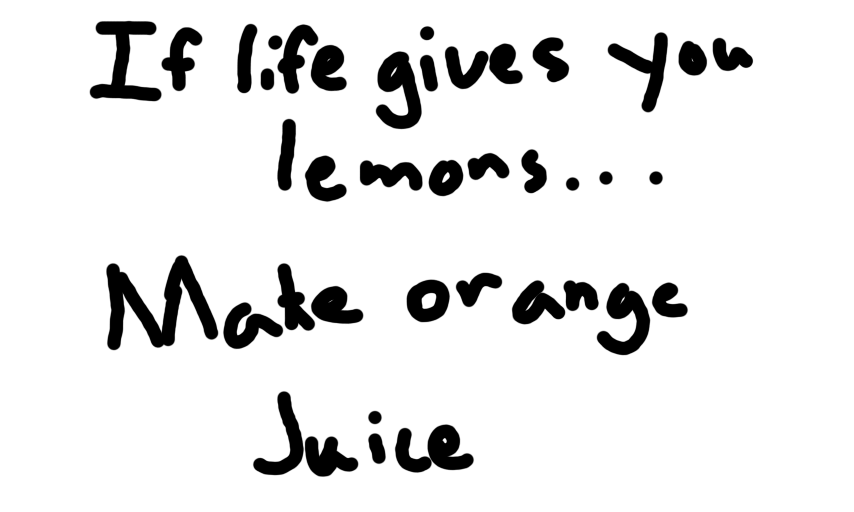 If life gives you
lemons...
Make orange
Juice